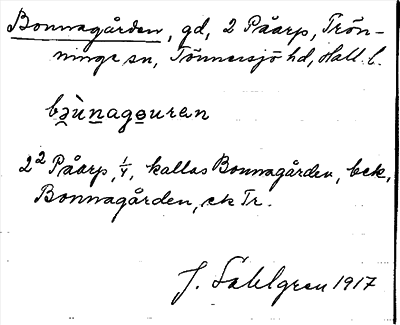 Bonnagården, gd, 2 Påarp, Trön-
ninge sn, Tönnersjö hd, Hall. l.
bju̇nagǫuren
2² Påarp, ¼, kallas Bonnagården, bek.
Bonnagården, ek Tr.
J. Sahlgren 1917